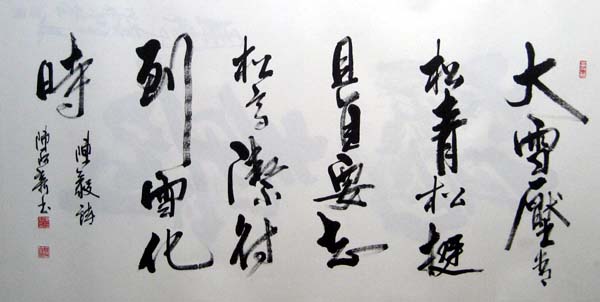 大雪壓青
松青松挺
且直要知
松高潔待
到雪化
時
陳毅詩
陳 书